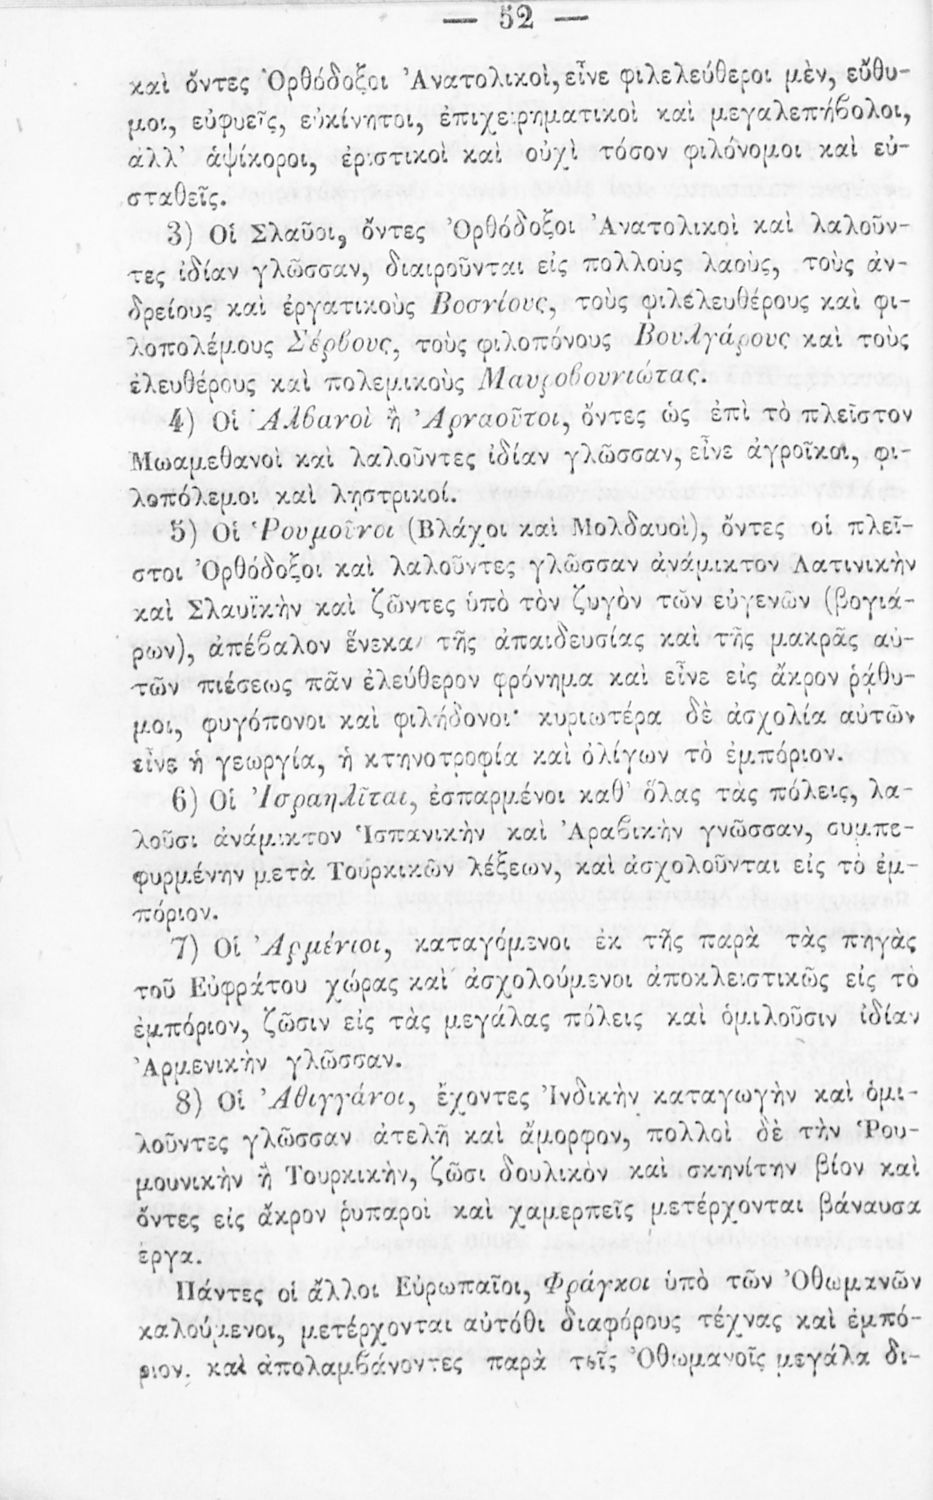 — 52 —
καὶ ὄντες Ὀρθόδοξοι Ἀνατολικοὶ, εἶνε φιλελεύθεροι μὲν, εὔθυ-
μοι, εὐφυεῖς, εὐκίνητοι, ἐπιχειρηματικοὶ καὶ μεγαλεπήβολοι,
ἀλλ' ἁψίκοροι, ἐριστικοὶ καὶ οὐχὶ τόσον φιλόνομοι καὶ εὐ-
σταθεῖς.
3) Οἱ Σλαῦοι, ὄντες Ὀρθόδοξοι Ἀνατολικοὶ καὶ λαλοῦν-
τες ἰδίαν γλῶσσαν, διαιροῦνται εἰς πολλοὺς λαοὺς, τοὺς ἀν-
δρείους καὶ ἐργατικοὺς Βοσνίους, τοὺς φιλελευθέρους καὶ φι-
λοπολέμους Σέρβους, τοὺς φιλοπόνους Βουλγάρους καὶ τοὺς
ἐλευθέρους καὶ πολεμικοὺς Μαυροβουνιώτας.
4) Οἱ Ἀλβανοὶ ἢ Ἀρναοῦτοι, ὄντες ὡς ἐπὶ τὸ πλεῖστον
Μωαμεθανοὶ καὶ λαλοῦντες ἰδίαν γλῶσσαν, εἶνε ἀγροῖκοι, φι-
λοπόλεμοι καὶ λῃστρικοί.
5) Οἱ Ῥουμοῦνοι (Βλάχοι καὶ Μολδαυοὶ), ὄντες οἱ πλεῖ-
στοι Ὀρθόδοξοι καὶ λαλοῦντες γλῶσσαν ἀνάμικτον Λατινικὴν
καὶ Σλαυϊκὴν καὶ ζῶντες ὑπὸ τὸν ζυγὸν τῶν εὐγενῶν (βογιά-
ρων), ἀπέβαλον ἕνεκα τῆς ἀπαιδευσίας καὶ τῆς μακρᾶς αὐ-
τῶν πιέσεως πᾶν ἐλεύθερον φρόνημα καὶ εἶνε εἰς ἄκρον ῥάθυ-
μοι, φυγόπονοι καὶ φιλήδονοι· κυριωτέρα δὲ ἀσχολία αὐτῶν
εἶνε ἡ γεωργία, ἡ κτηνοτροφία καὶ ὀλίγων τὸ ἐμπόριον.
6) Οἱ Ἰσραηλῖται, ἐσπαρμένοι καθ' ὅλας τὰς πόλεις, λα-
λοῦσι ἀνάμικτον Ἱσπανικὴν καὶ Ἀραβικὴν γνῶσσαν, συμπε-
φυρμένην μετὰ Τουρκικῶν λέξεων, καὶ ἀσχολοῦνται εἰς τὸ ἐμ-
πόριον.
7) Οἱ Ἀρμένιοι, καταγόμενοι ἐκ τῆς παρὰ τὰς πηγὰς
τοῦ Εὐφράτου χώρας καὶ ἀσχολούμενοι ἀποκλειστικῶς εἰς τὸ
ἐμπόριον, ζῶσιν εἰς τὰς μεγάλας πόλεις καὶ ὁμιλοῦσιν ἰδίαν
Ἀρμενικὴν γλῶσσαν.
8) Οἱ Ἀθιγγάνοι, ἔχοντες Ἰνδικὴν καταγωγὴν καὶ ὁμι-
λοῦντες γλῶσσαν ἀτελῆ καὶ ἄμορφον, πολλοὶ δὲ τὴν Ῥου-
μουνικὴν ἢ Τουρκικὴν, ζῶσι δουλικὸν καὶ σκηνίτην βίον καὶ
ὄντες εἰς ἄκρον ῥυπαροὶ καὶ χαμερπεῖς μετέρχονται βάναυσα
ἔργα.
Πάντες οἱ ἄλλοι Εὐρωπαῖοι, Φράγκοι ὑπὸ τῶν Ὀθωμανῶν
καλούμενοι, μετέρχονται αὐτόθι διαφόρους τέχνας καὶ ἐμπό-
ριον, καὶ ἀπολαμβάνοντες παρὰ τοῖς Ὀθωμανοῖς μεγάλα δι-